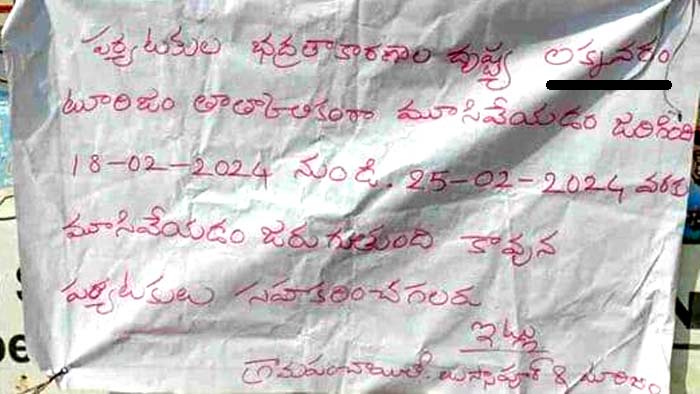 పర్యటకుల భద్రతాకారణాల దృష్ట్య లక్నవరం
టూరిజం తాత్కాలికంగా మూసివేయడం జరిగింది
18-02-2024 నుండి. 25-02-2024 వరకు
మూసివేయడం జరుగుతుంది కావున
పర్యటకులు సహకరించగలరు
ఇట్లు
గ్రామపంచాయితీ. బుస్సాపూర్ & టూరిజం